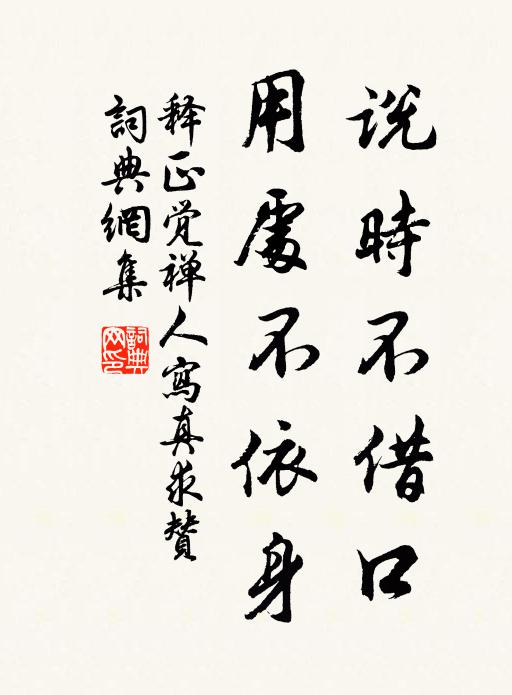 说時不借口
用處不依身
释正觉禅人寫真求贊
詞典網集
詞典网印